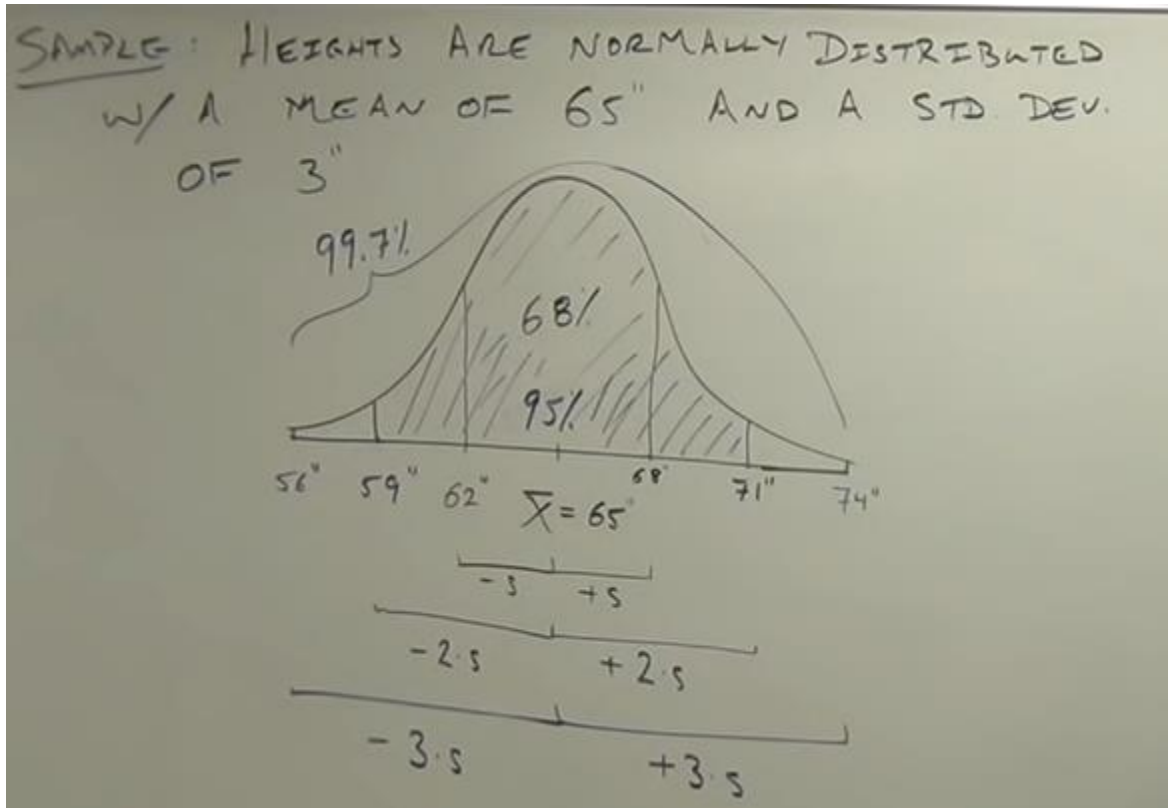 SAMPLE: HEIGHTS ARE NORMALLY DISTRIBUTED
W/ A MEAN OF 65" AND A STD DEV.
OF 3"
99.7%
68%
95%
56" 59" 62" X̄ = 65" 68" 71" 74"
-s +s
-2·s +2·s
-3·s +3·s